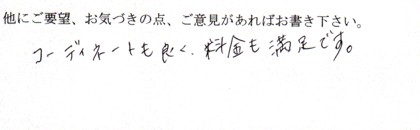 他にご要望、お気づきの点、ご意見があればお書き下さい。
コーディネートも良く、料金も満足です。